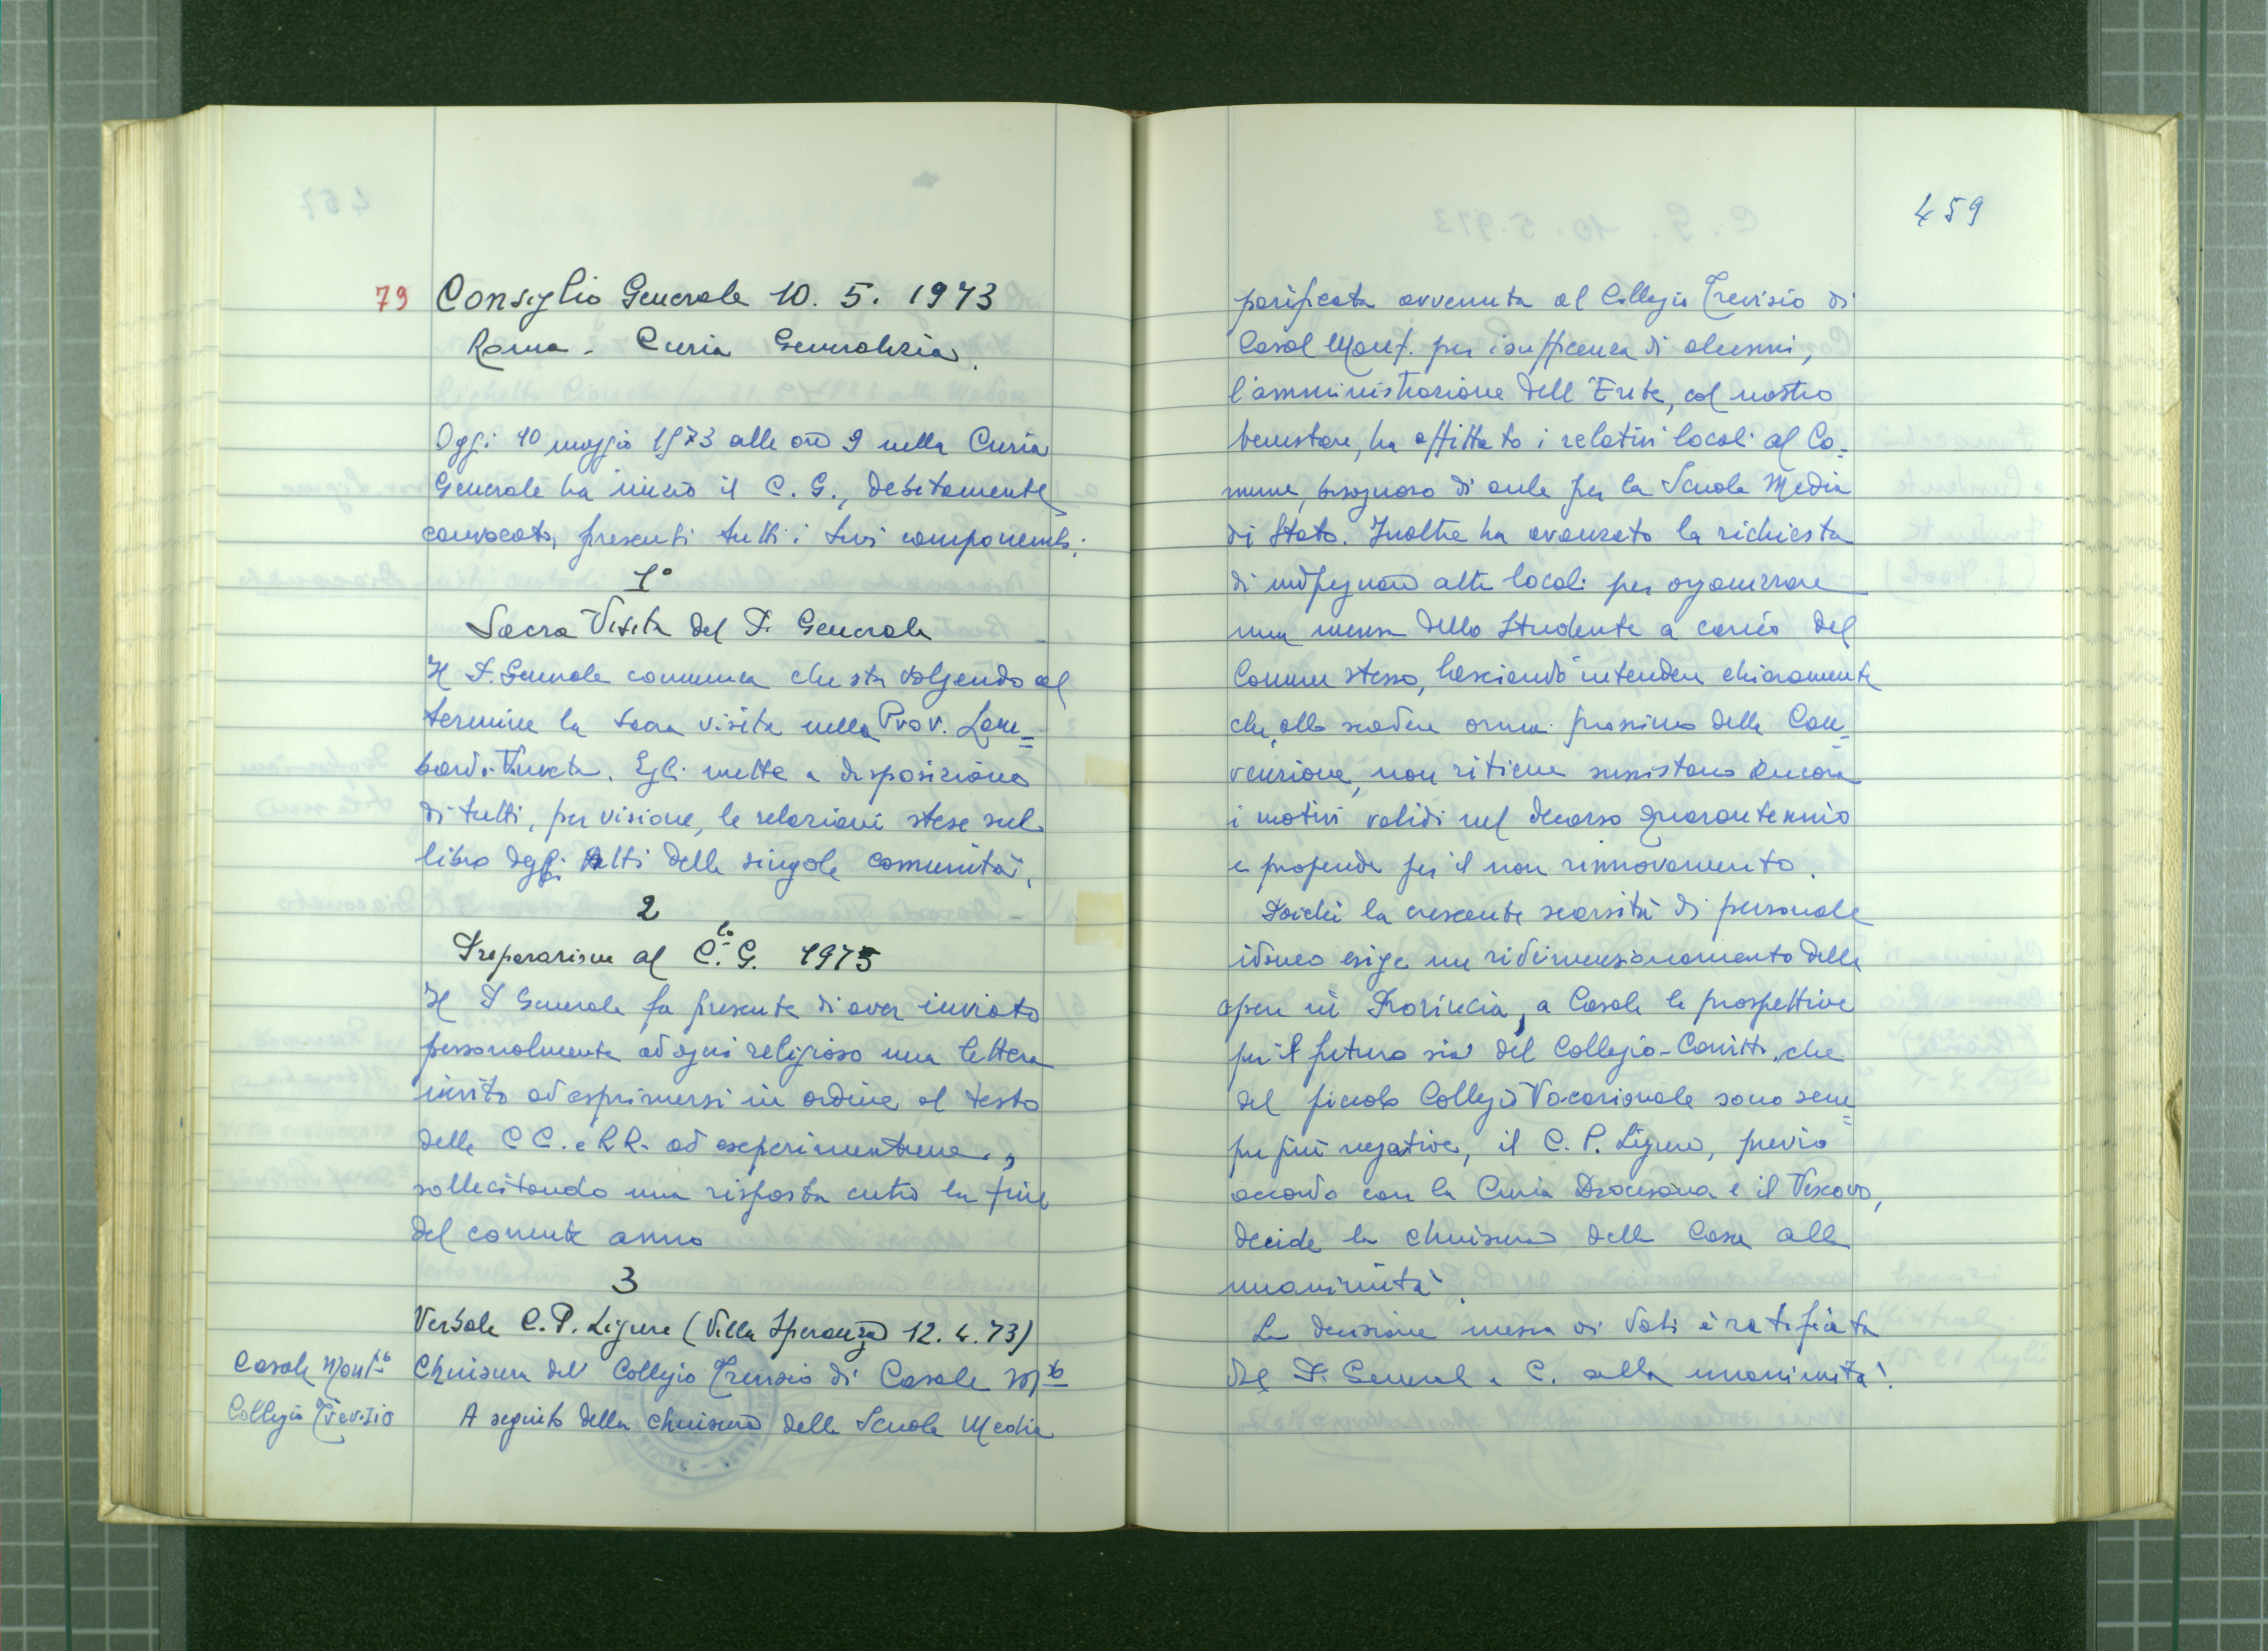 79 Consiglio Generale 10. 5. 1973
Roma - Curia Generalizia.
Oggi 10 maggio 1973 alle ore 9 nella Curia
Generale ha inizio il C. G., debitamente
convocato, presenti tutti i suoi componenti:
1°
Sacra Visita del P. Generale
Il P. Generale comunica che sta volgendo al
termine la sacra visita nella Prov. Lom=
bardo-Veneta. Egli mette a disposizione
di tutti, per visione, le relazioni stese sul
libro degli Atti delle singole comunità.
2
Preparazione al C.lo G. 1975
Il P. Generale fa presente di aver inviato
personalmente ad ogni religioso una lettera
invito ad esprimersi in ordine al testo
delle C C. e R R. ad experimentum,
sollecitando una risposta entro la fine
del corrente anno
3
Verbale C. P. Ligure (Villa Speranza 12. 4. 73)
Casale Monf.to
Chiusura del Collegio Trevisio di Casale M.to
Collegio Trevisio
A seguito della chiusura della Scuola Media
459
parificata avvenuta al Collegio Trevisio di
Casal Monf. per insufficenza di alunni,
l'amministrazione dell'Ente, col nostro
benestare, ha affittato i relativi locali al Co=
mune, bisognoso di aule per la Scuola Media
di Stato. Inoltre ha avanzato la richiesta
di altri locali per organizzare
una mensa dello Studente a carico del
Comune stesso, lasciando intendere chiaramente
che, allo scadere ormai prossimo della Con=
venzione, non ritiene sussistano ancora
i motivi validi nel decorso quarantennio
e propende per il non rinnovamento.
Poichè la crescente scarsità di personale
idoneo esige un ridimensionamento delle
opere in Provincia, a Casale le prospettive
per il futuro sia del Collegio-Convitto, che
del piccolo Collegio Vocazionale sono sem=
pre più negative, il C. P. Ligure, previo
accordo con la Curia Diocesana e il Vescovo,
decide la chiusura della Casa alla
unanimità.
La decisione messa ai voti è ratificata
dal P. General e C. alla unanimità.